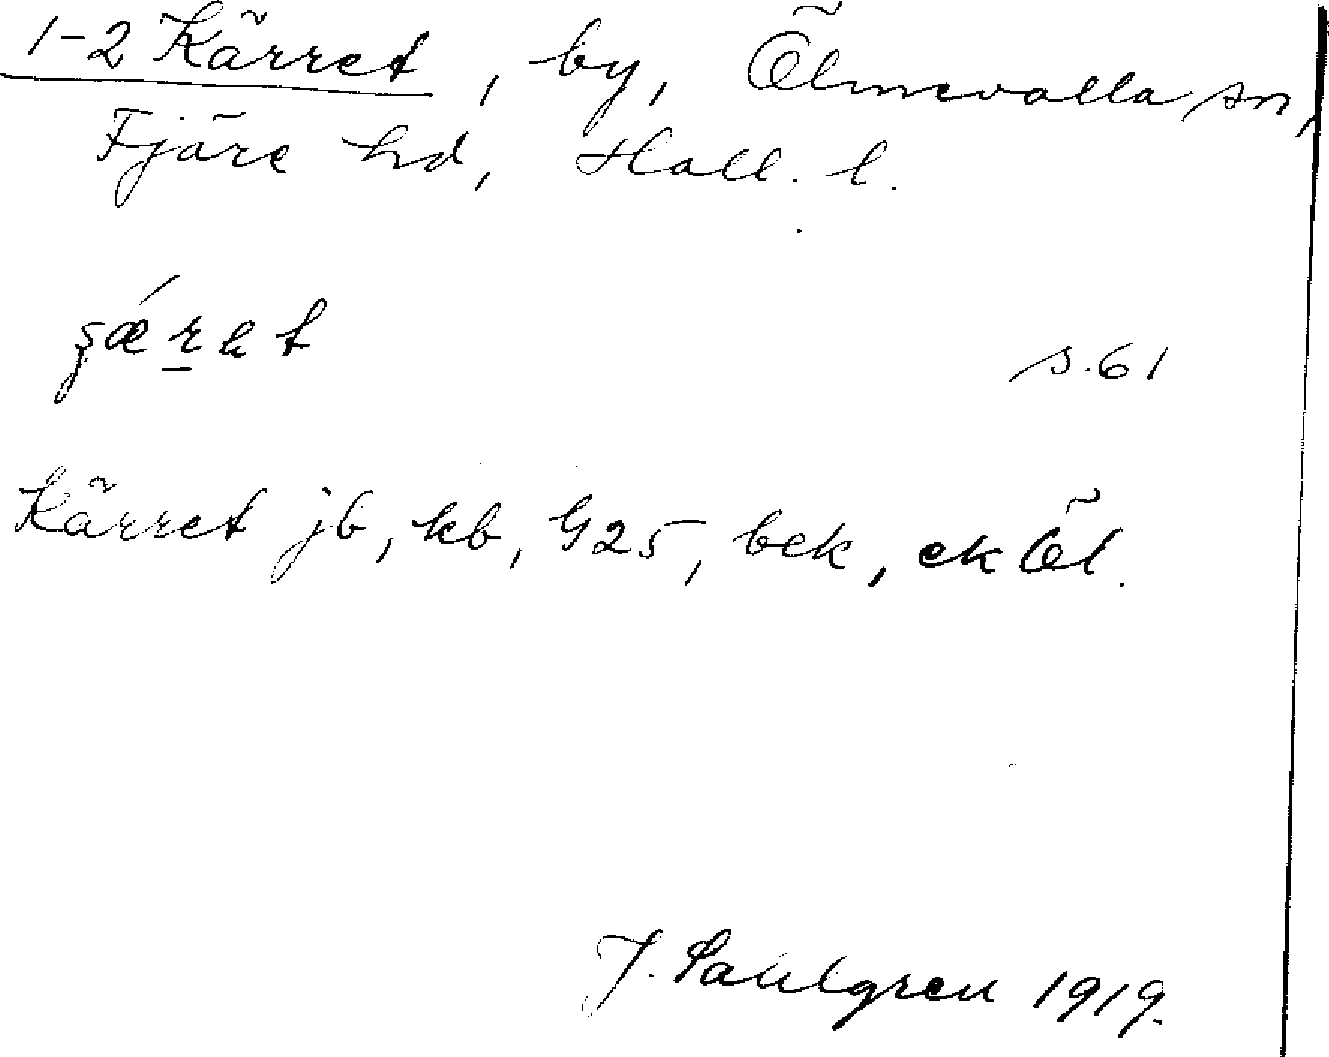 1-2 Kärret, by, Ölmevalla sn,
Fjäre hd, Hall. l.
s.61
Kärret jb, kb, G25, bek, ek Öl.
J. Sahlgren 1919.